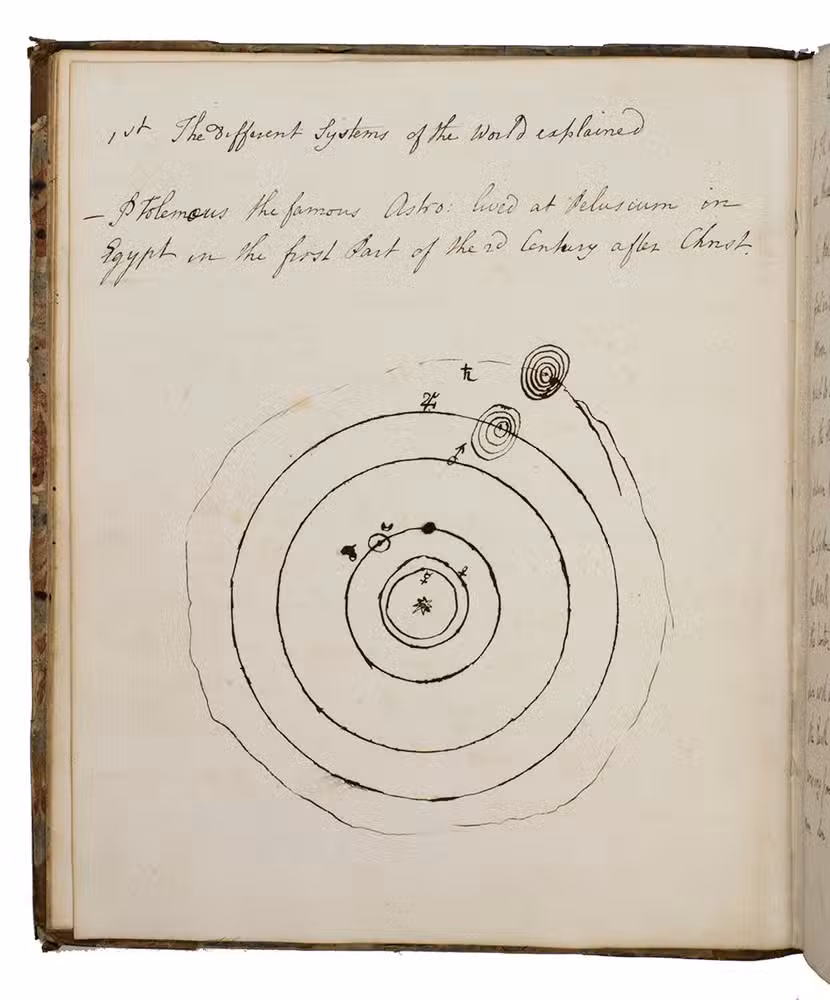 1st The Different Systems of the World explained
— Ptolemous the famous Astro: lived at Pelusium in
Egypt in the first Part of the 2d Century after Christ.
♄
♃
♂
♀
☿